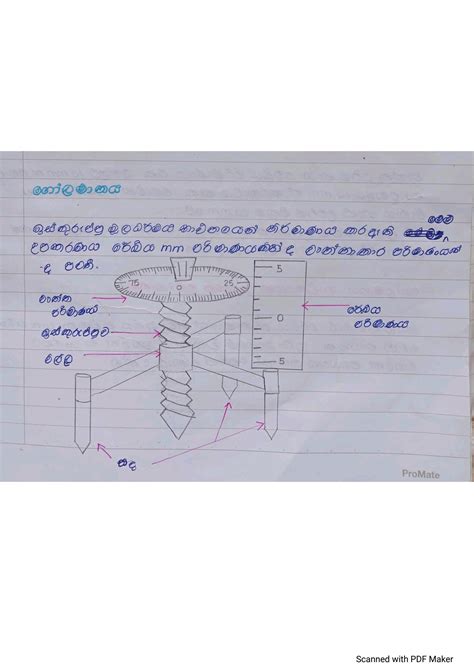 ගෝලමානය
ඉස්කුරුප්පු මූලධර්මය භාවිතයෙන් නිර්මාණය කරඇති මෙම
උපකරණය රේඛීය mm පරිමාණයකින් ද වෘත්තාකාර පරිමාණයක්
ද පටති.
75 0 25
5
0
5
වෘත්ත
පරිමාණය
ඉස්කුරුප්පුව
රේඛීය
පරිමාණය
පාද
ProMate
Scanned with PDF Maker